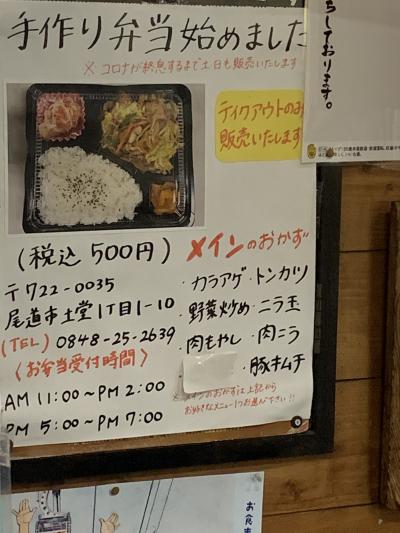 手作り弁当始めました
※ コロナが終息するまで土日も販売いたします
テイクアウトのお
販売いたします
(税込 500円)
〒722-0035
尾道市土堂1丁目1-10
(TEL) 0848-25-2639
(お弁当受付時間)
AM 11:00～PM 2:00
PM 5:00～PM 7:00
メインのおかず
・カラアゲ・トンカツ
・野菜炒め・ニラ玉
・肉もやし・肉ニラ
・豚キムチ
※ メインのおかずは上記から
お好きなメニュー1つお選び下さい!!
ちしております。
お食事